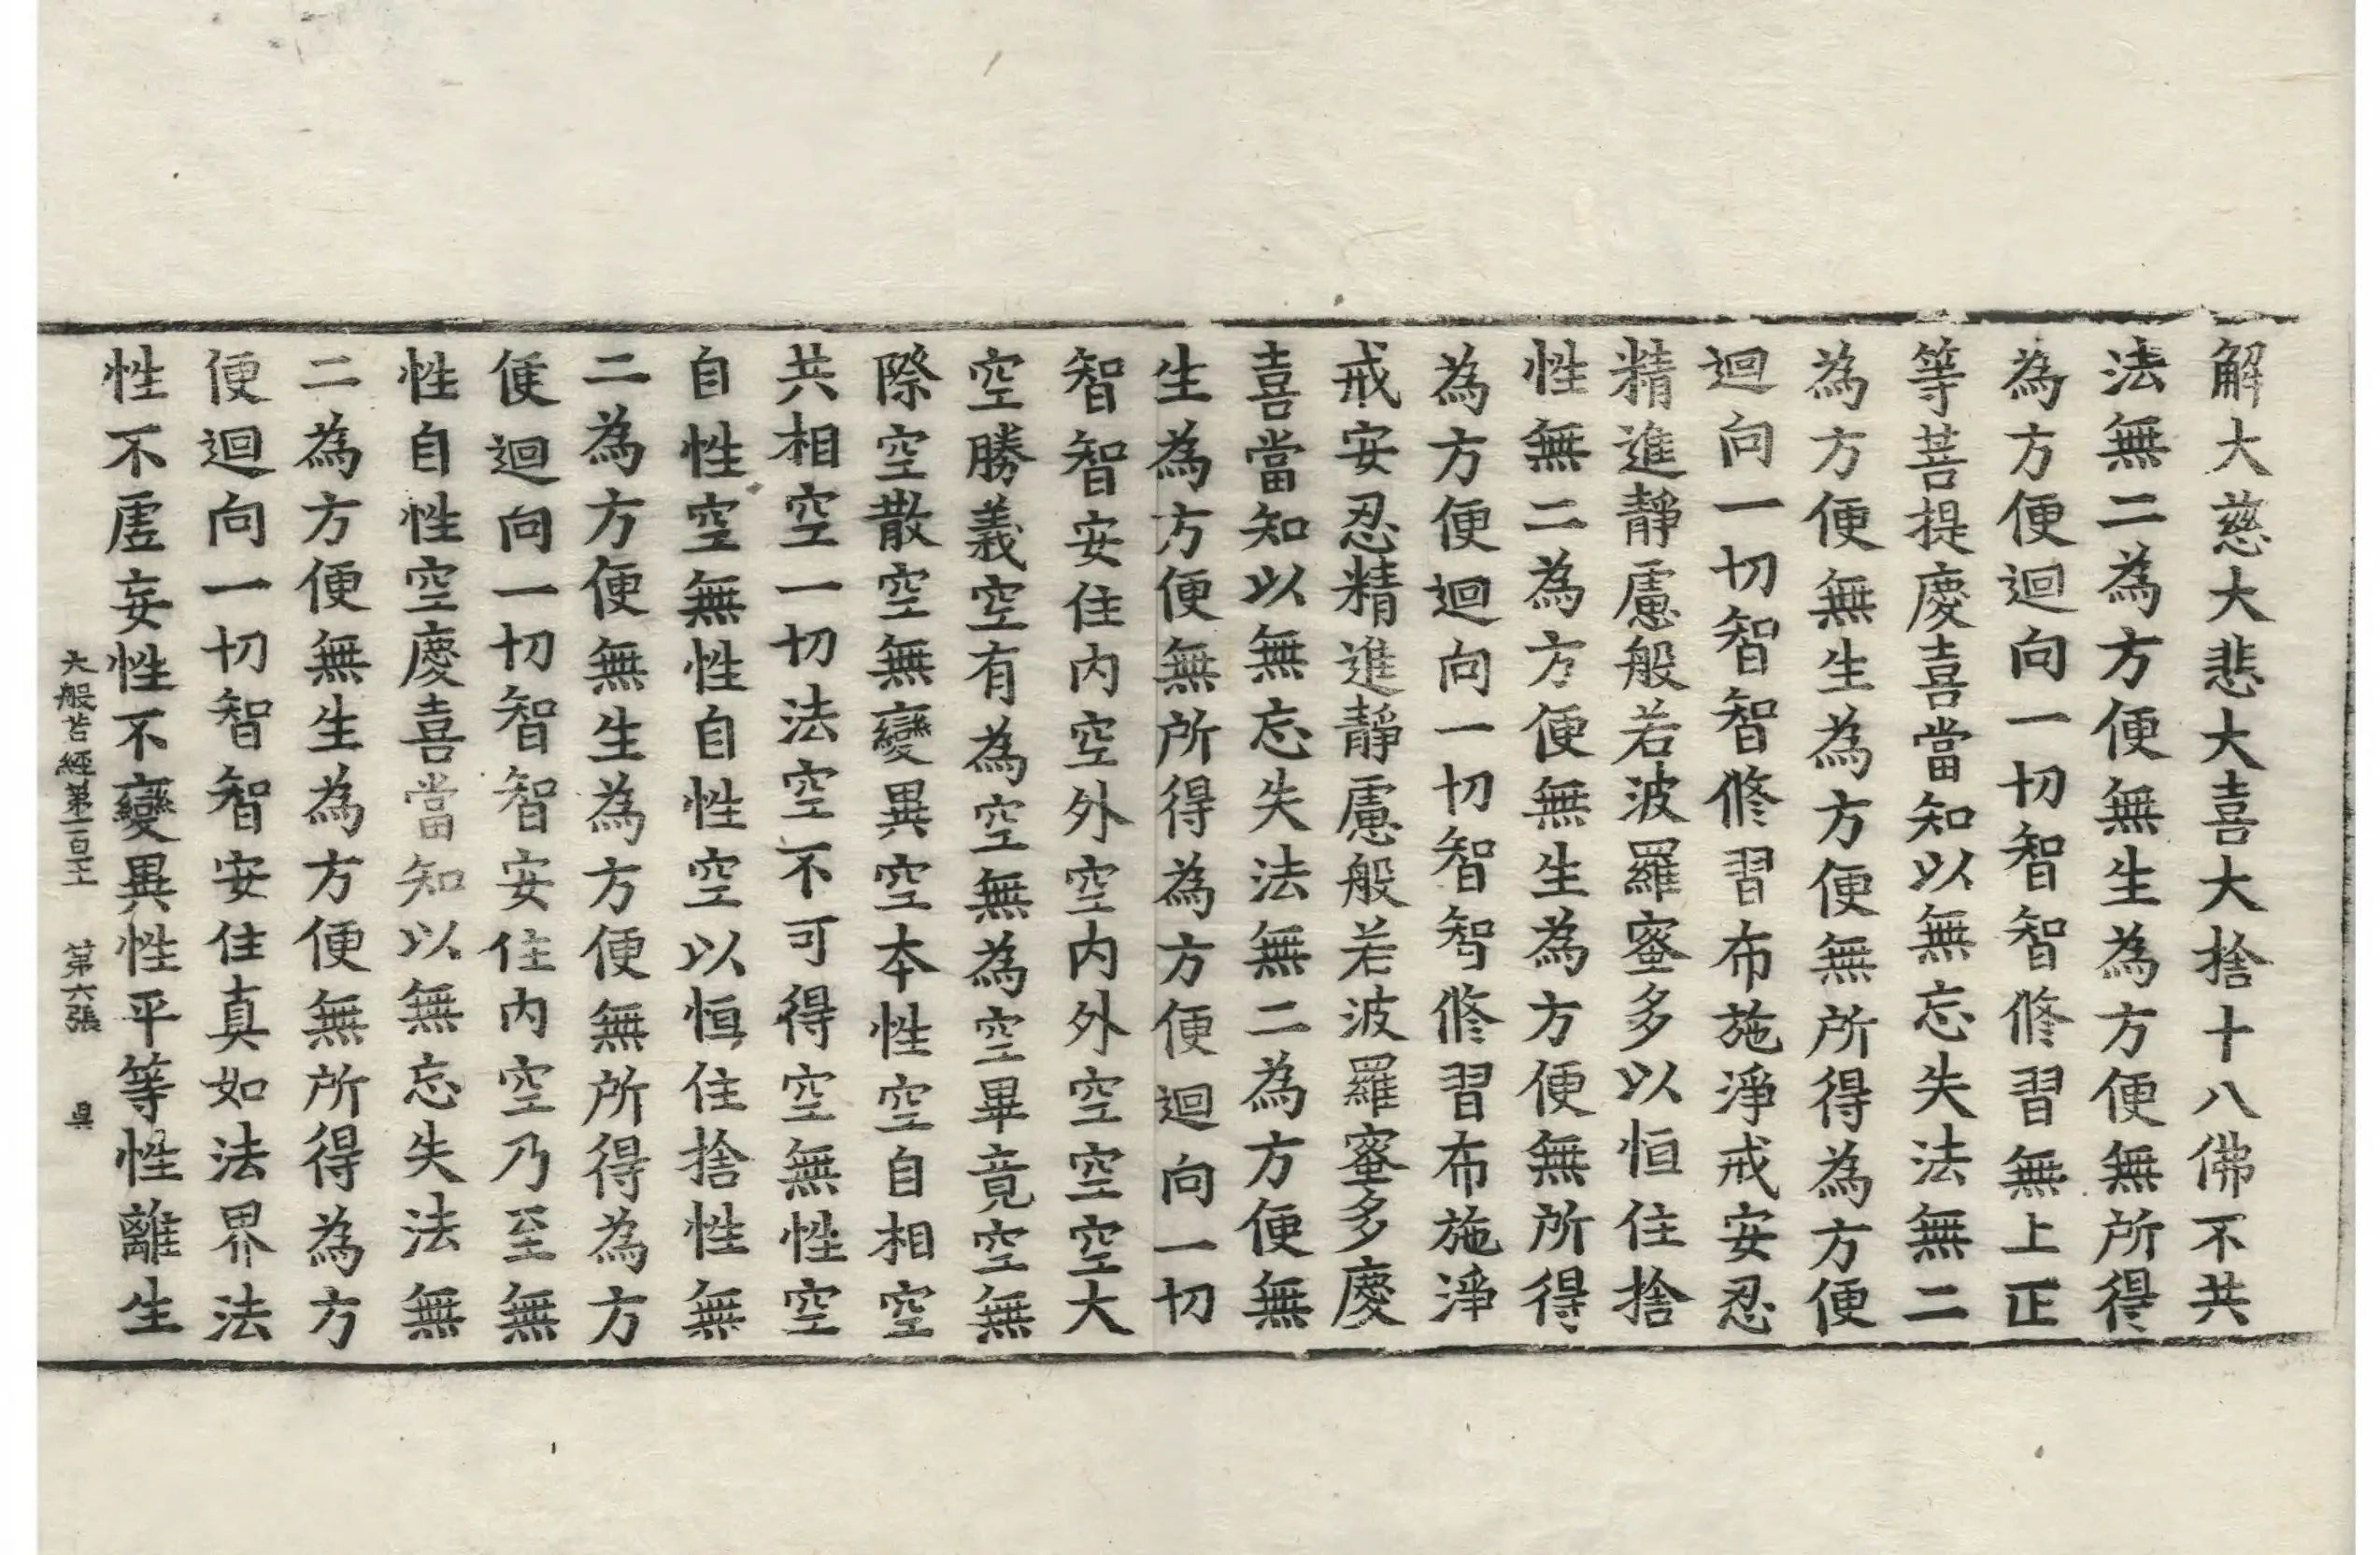 解大慈大悲大喜大捨十八佛不共
法無二為方便無生為方便無所得
為方便迴向一切智智修習無上正
等菩提慶喜當知以無忘失法無二
為方便無生為方便無所得為方便
迴向一切智智修習布施淨戒安忍
精進靜慮般若波羅蜜多以恒住捨
性無二為方便無生為方便無所得
為方便迴向一切智智修習布施淨
戒安忍精進靜慮般若波羅蜜多慶
喜當知以無忘失法無二為方便無
生為方便無所得為方便迴向一切
智智安住內空外空內外空空空大
空勝義空有為空無為空畢竟空無
際空散空無變異空本性空自相空
共相空一切法空不可得空無性空
自性空無性自性空以恒住捨性無
二為方便無生為方便無所得為方
便迴向一切智智安住內空乃至無
性自性空慶喜當知以無忘失法無
二為方便無生為方便無所得為方
便迴向一切智智安住真如法界法
性不虛妄性不變異性平等性離生
大般若經第一百 第六張